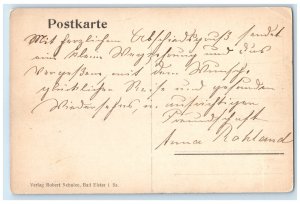 Postkarte
Mit herzlichem Abschiedsgruß sendet
eine kleine und das
mit dem Wunsche
glücklicher Reise und gesunden
Wiedersehns, u. aufrichtigen
Freundschaft
Anna Rohland
Verlag Robert Schulze, Bad Elster i. Sa.